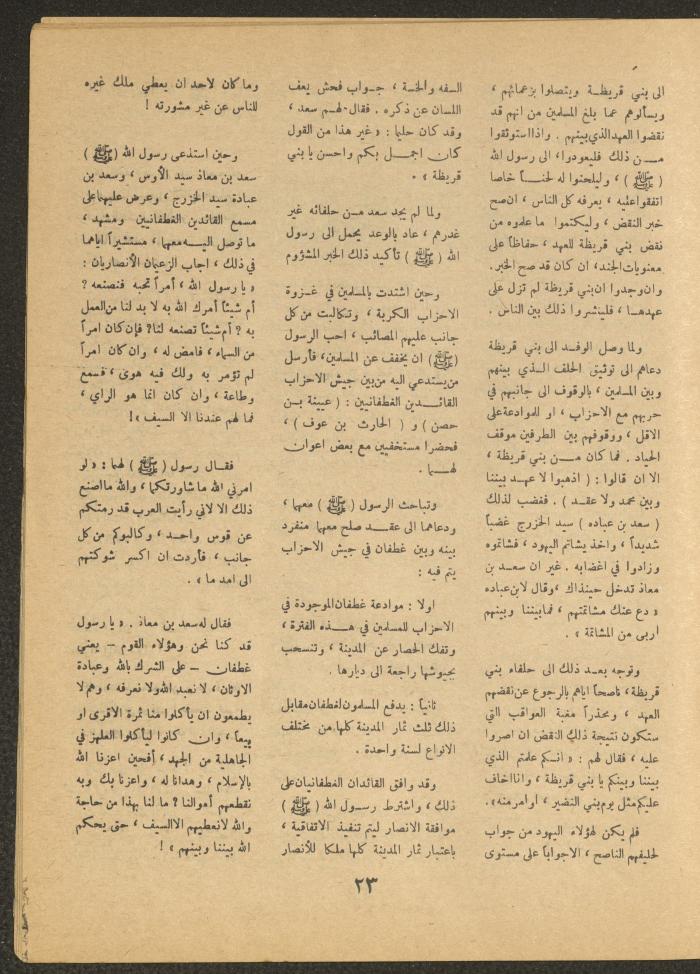 الى بني قريظة ويتصلوا بزعمائهم ،
ويسألوهم عما بلغ المسلمين من انهم قد
نقضوا العهد الذي بينهم . واذا استوثقوا
من ذلك فليعودوا، الى رسول الله
(ﷺ) ، وليلحنوا له لحناً خاصا
اتفقوا عليه ، يعرفه كل الناس ، ان صح
خبر النقض ، وليكتموا ما علموه من
نقض بني قريظة للعهد ، حفاظاً على
معنويات الجند، ان كان قد صح الخبر.
وان وجدوا ان بني قريظة لم تزل على
عهدها ، فلينشروا ذلك بين الناس .
ولما وصل الوفد الى بني قريظة
دعاهم الى توثيق الحلف الذي بينهم
وبين المسلمين ، بالوقوف الى جانبهم في
حربهم مع الاحزاب ، او للموادعة على
الاقل ، ووقوفهم بين الطرفين موقف
الحياد . فما كان من بني قريظة ،
الا ان قالوا : ( اذهبوا لا عهد بيننا
وبين محمد ولا عقد ) . فغضب لذلك
( سعد بن عباده ) سيد الخزرج غضباً
شديداً ، واخذ يشاتم اليهود ، فشاتموه
وزادوا في اغضابه . غير ان سعد بن
معاذ تدخل حينذاك ، وقال لابن عباده
« دع عنك مشاتمتهم ، فما بيننا وبينهم
اربى من المشاتمة » .
وتوجه بعد ذلك الى حلفاء بني
قريظة ، ناصحاً اياهم بالرجوع عن نقضهم
العهد ، ومحذراً مغبة العواقب التي
ستكون نتيجة ذلك النقض ان اصروا
عليه ، فقال لهم : « انسكم علمتم الذي
بيننا وبينكم يا بني قريظة ، وانا اخاف
عليكم مثل يوم بني النضير ، او امر منه».
فلم يكن لهؤلاء اليهود من جواب
لحليفهم الناصح ، الا جواباً على مستوى
السفه والخسة ، جواب فحش يعف
اللسان عن ذكره . فقال لهم سعد ،
وقد كان حليما : « غير هذا من القول
كان اجمل بكم واحسن يا بني
قريظة » .
ولما لم يجد سعد من حلفائه غير
غدرهم ، عاد بالوعد يحمل الى رسول
الله (ﷺ) تأكيد ذلك الخبر المشؤوم
وحين اشتدت بالمسلمين في غزوة
الاحزاب الكربة ، وتكالبت من كل
جانب عليهم المصائب ، احب الرسول
(ﷺ) ان يخفف عن المسلمين، فأرسل
من يستدعي اليه من بين جيش الاحزاب
القائدين الغطفانيين : ( عيينة بن
حصن ) و ( الحارث بن عوف ) ،
فحضرا مستخفيين مع بعض اعوان
لهما .
وتباحث الرسول (ﷺ) معهما ،
ودعاهما الى عقد صلح معهما منفرد
بينه وبين غطفان في جيش الاحزاب
يتم فيه :
اولا : موادعة غطفان الموجودة في
الاحزاب للمسلمين في هذه الفترة ،
وتفك الحصار عن المدينة ، وتنسحب
بجيوشها راجعة الى ديارها .
ثانياً : يدفع المسلمون لغطفان مقابل
ذلك ثلث ثمار المدينة كلها من مختلف
الانواع لسنة واحدة .
وقد وافق القائدان الغطفانيان على
ذلك ، واشترط رسول الله (ﷺ)
موافقة الانصار ليتم تنفيذ الاتفاقية ،
باعتبار ثمار المدينة كلها ملكا للأنصار
وما كان لاحد ان يعطي ملك غيره
للناس عن غير مشورته !
وحين استدعى رسول الله (ﷺ)
سعد بن معاذ سيد الأوس ، وسعد بن
عبادة سيد الخزرج ، وعرض عليهما على
مسمع القائدين الغطفانيين ومشهد ،
ما توصل اليه معهما ، مستشيراً اياهما
في ذلك ، اجاب الزعيمان الأنصاريان :
« يا رسول الله ، أمراً تحبه فنصنعه ؟
أم شيئاً أمرك الله به لا بد لنا من العمل
به ؟ أم شيئاً تصنعه لنا؟ فإن كان امراً
من السماء ، فامض له ، وان كان امراً
لم تؤمر به ولك فيه هوى ، فسمع
وطاعة ، وان كان انما هو الراي ،
فما لهم عندنا الا السيف »!
فقال رسول (ﷺ) لهما : « لو
امرني الله ما شاورتكما ، والله ما اصنع
ذلك الا لاني رأيت العرب قد رمتكم
عن قوس واحد ، وكالبوكم من كل
جانب ، فأردت ان اكسر شوكتهم
الى امد ما » .
فقال له سعد بن معاذ . « يا رسول
قد كنا نحن وهؤلاء القوم – يعني
غطفان – على الشرك بالله وعبادة
الاوثان ، لا نعبد الله ولا نعرفه ، وهم لا
يطمعون ان يأكلوا منا ثمرة الا قرى او
بيعاً ، وان كانوا ليأكلوا العلهز في
الجاهلية من الجهد ، أفحين اعزنا الله
بالإسلام ، وهدانا له ، واعزنا بك وبه
نقطعهم أموالنا ؟ ما لنا بهذا من حاجة
والله لا نعطيهم الا السيف ، حتى يحكم
الله بيننا وبينهم » !
٢٣